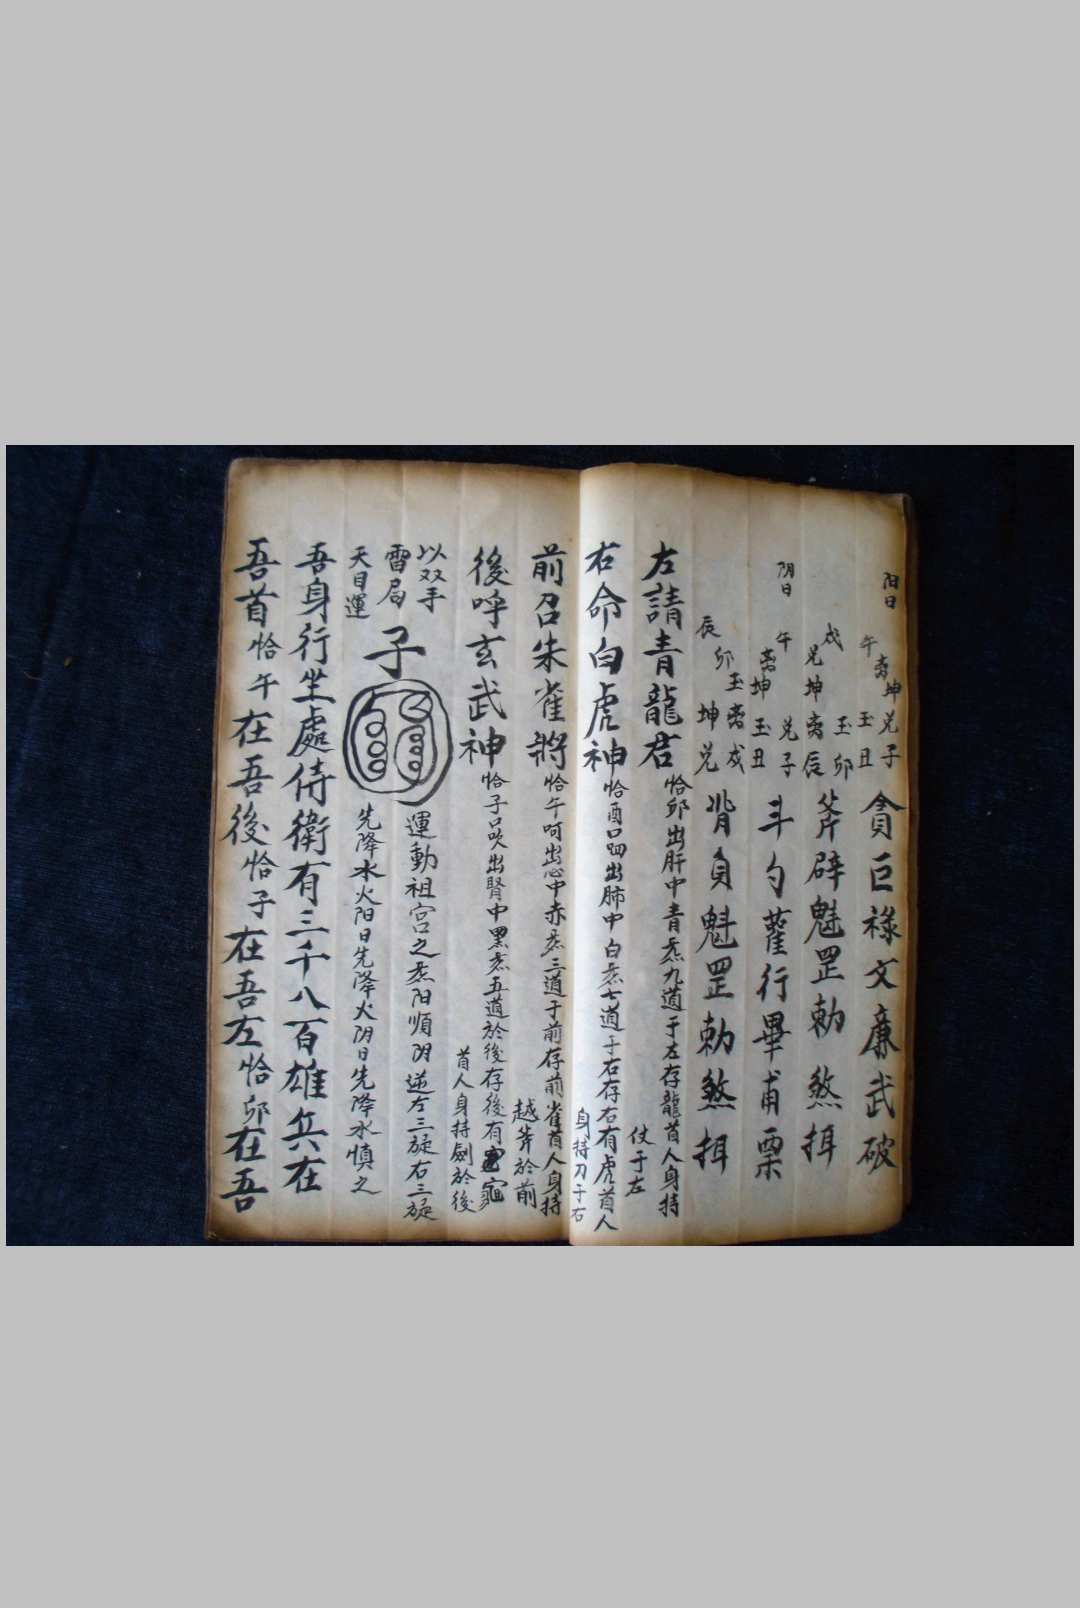 阳日
午离坤兑子
玉丑
贪巨祿文廉武破
戌
兑坤离辰
玉卯
斧辟魁罡勅煞揖
阴日
午
离坤兑子
玉丑
斗勺藿行畢甫票
辰
卯
玉离戌
坤兑
背負魁罡勅煞揖
左請青龍君恰卯出肝中青炁九道于左存龍首人身持
仗于左
右命白虎神恰酉口呬出肺中白炁七道于右存右有虎首人
身持刀于右
前召朱雀將恰午呵出心中赤炁三道于前存前雀首人身持
越斧於前
後呼玄武神恰子吹出腎中黑炁五道於後存後有龜
首人身持劍於後
以双手
雷局
天目運
子
運動祖宫之炁阳順阴逆左三旋右三旋
先降水火阳日先降火阴日先降水慎之
吾身行坐處侍衛有三千八百雄兵在
吾首恰午在吾後恰子在吾左恰卯在吾